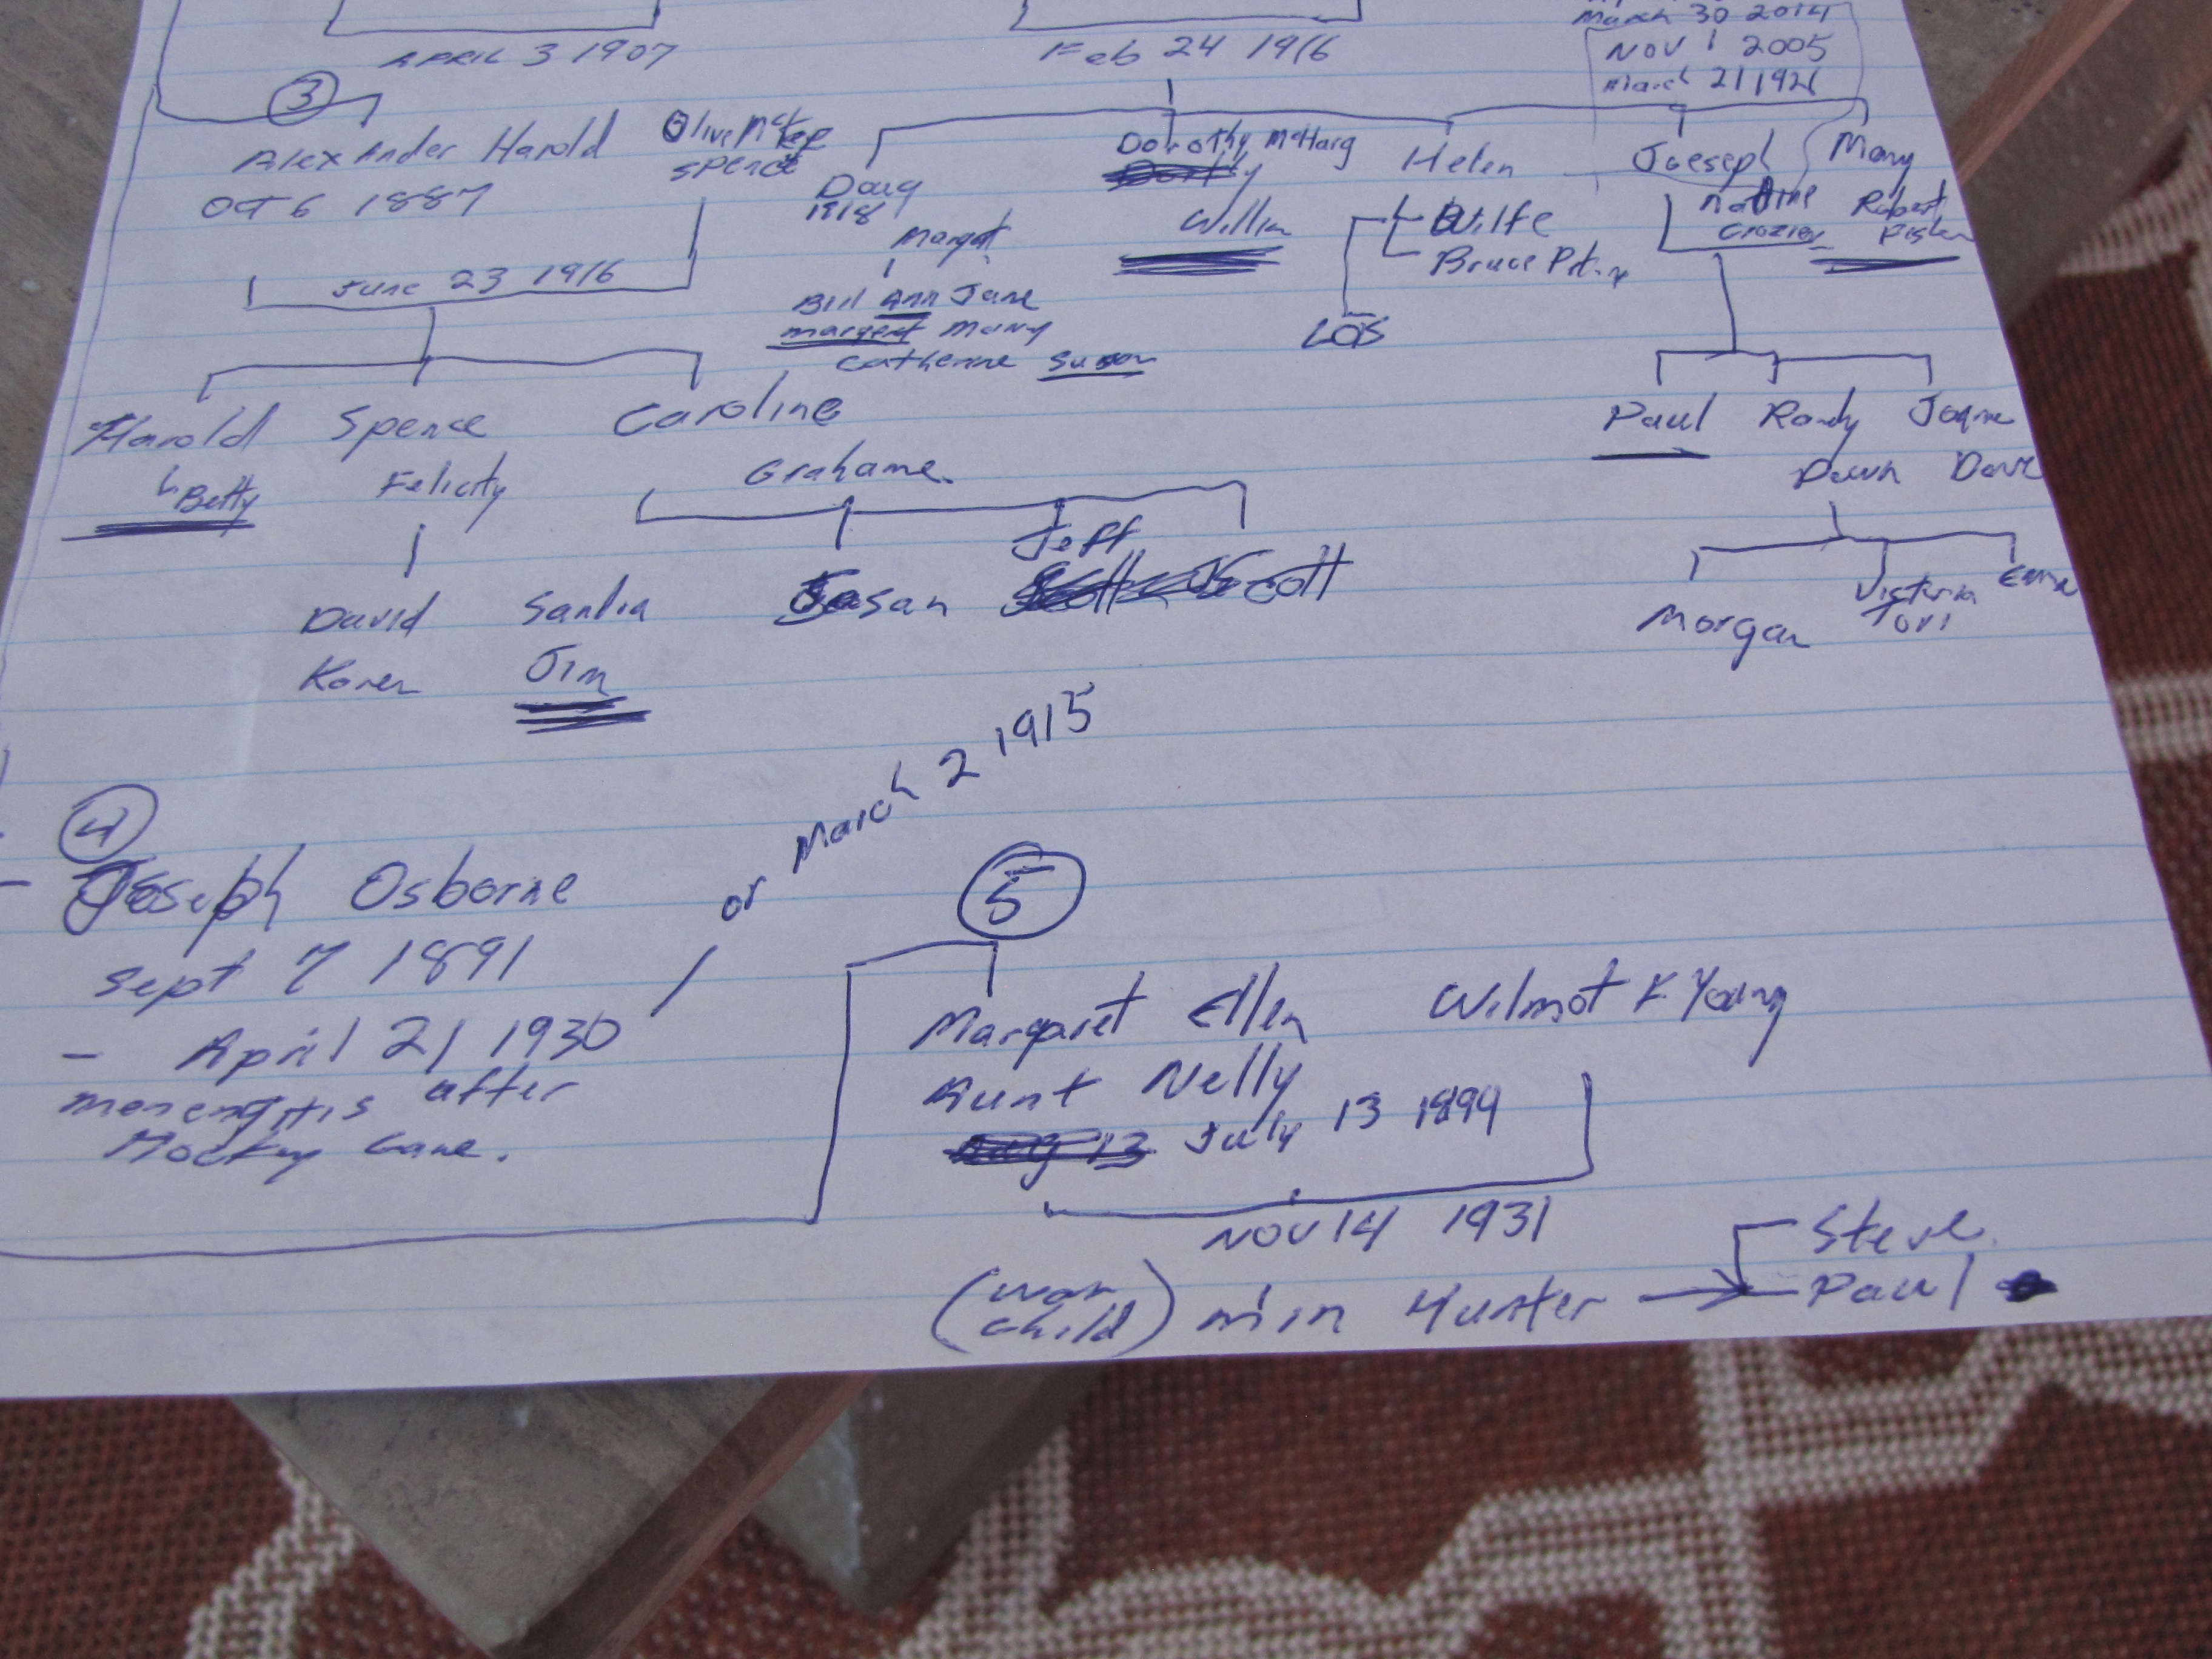 March 30 2014
APRIL 3 1907
Feb 24 1916
NOV 1 2005
March 21 1926
3
Alexander Harold
Olive
Spence
OCT 6 1887
June 23 1916
Dorothy McHarg
Helen
Joeseph
Mary
Doug
1918
Margret
Willia
Wilfe
Bruce
Crozier
Robert
Bill Ann Jane
margert Mary
Catherine Suson
LOIS
Harold
Spence
Caroline
Betty
Felicity
Grahame.
Paul
Randy
Joanne
Dawn
Dave
David
Sandra
Susan
Jeff
Scott
Karen
Jim
Morgan
Victoria
Tori
4
Joseph Osborne
or March 2 1915
sept 7 1891
- April 21 1930 /
menengitis after
Hockey Game.
5
Margaret Ellen
Wilmot F. Young
Aunt Nelly
July 13 1894
NOV 14 1931
(war
child)
min Hunter
Steve
Paul